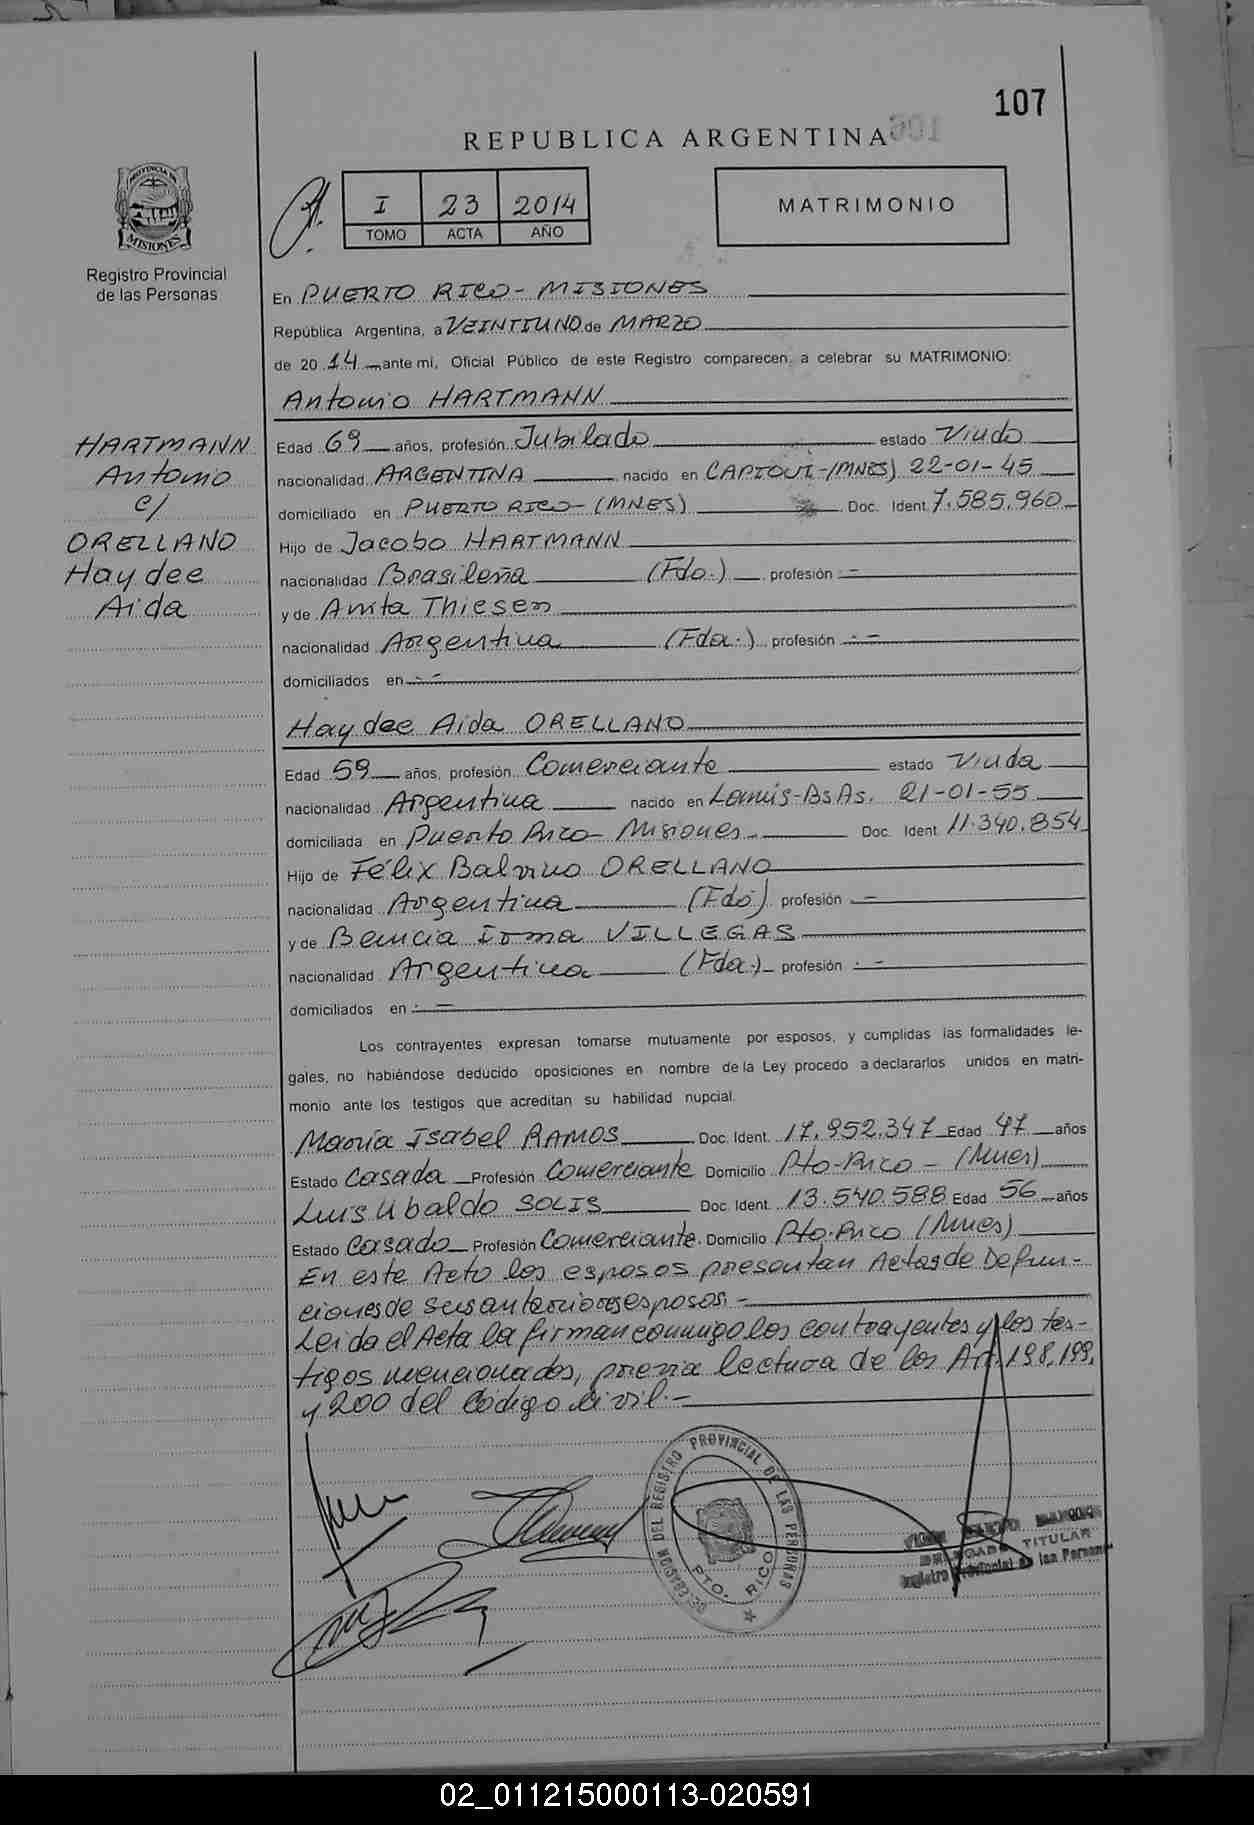 107
REPUBLICA ARGENTINA
PROVINCIA DE
MISIONES
Registro Provincial
de las Personas
I 23 2014
TOMO ACTA AÑO
MATRIMONIO
En PUERTO RICO - MISIONES
República Argentina, a VEINTIUNO de MARZO
de 20 14 ante mi, Oficial Público de este Registro comparecen, a celebrar su MATRIMONIO:
Antonio HARTMANN
HARTMANN
Antonio
c/
ORELLANO
Haydee
Aida
Edad 69 años, profesión Jubilado estado Viudo
nacionalidad ARGENTINA nacido en CAPIOVI-(MNES) 22-01-45
domiciliado en PUERTO RICO-(MNES) Doc. Ident. 7.585.960
Hijo de Jacobo HARTMANN
nacionalidad Brasileña (Fdo.) profesión -
y de Anita Thiesen
nacionalidad Argentina (Fda.) profesión . -
domiciliados en . -
Haydee Aida ORELLANO
Edad 59 años, profesión Comerciante estado Viuda
nacionalidad Argentina nacido en Lanús-BsAs. 21-01-55
domiciliada en Puerto Rico - Misiones. Doc. Ident. 11.340.854
Hijo de Félix Balvino ORELLANO
nacionalidad Argentina (Fdo) profesión . -
y de Benicia Irma VILLEGAS
nacionalidad Argentina (Fda.) profesión . -
domiciliados en . -
Los contrayentes expresan tomarse mutuamente por esposos, y cumplidas las formalidades le-
gales, no habiéndose deducido oposiciones en nombre de la Ley procedo a declararlos unidos en matri-
monio ante los testigos que acreditan su habilidad nupcial.
María Isabel RAMOS Doc. Ident. 17.952.347 Edad 47 años
Estado Casada Profesión Comerciante Domicilio Pto-Rico - (Mnes)
Luis Ubaldo SOLIS Doc. Ident. 13.540.588 Edad 56 años
Estado Casado Profesión Comerciante. Domicilio Pto.Rico (Mnes)
En este Acto los esposos presentan Actas de Defun-
ciones de sus anteriores esposos. -
Leida el Acta la firman conmigo los contrayentes y los tes-
tigos mencionados, previa lectura de los Art. 198, 199,
y 200 del Código Civil. -
DELEGACION DEL REGISTRO PROVINCIAL DE LAS PERSONAS
PTO. RICO
DELEGADO TITULAR
Registro Provincial de las Personas
02_011215000113-020591